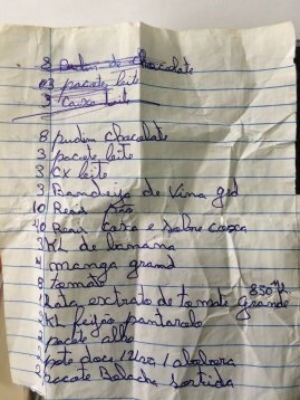 8 pudim de chocolate
3 pacote leite
3 caixa leite
8 pudim chocolate
3 pacote leite
3 CX leite
3 Bandeija de vina gd
10 Reais pão
10 Reais coxa e sobre coxa
3KL de banana
manga grand
8 tomão
1 Lata extrato de tomate grande 850
2KL feijão
pacote alho
pote doce 1 abobora
2 pacote Bolacha sortida